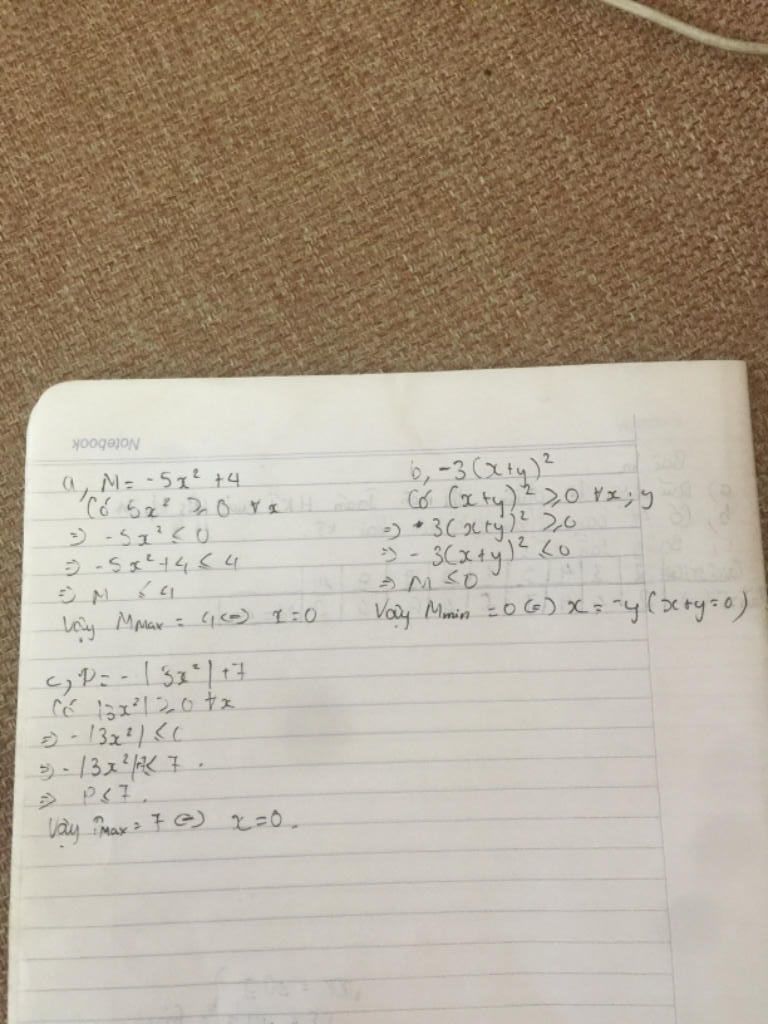 Notebook
a, M = -5x² + 4
Có 5x² ≥ 0 ∀x
=) -5x² ≤ 0
=) -5x²+4 ≤ 4
=) M ≤ 4
Vậy MMax = 4 (=) x=0
b, -3(x+y)²
Có (x+y)² ≥ 0 ∀x; y
=) 3(x+y)² ≥ 0
=) -3(x+y)² ≤ 0
=) M ≤ 0
Vậy Mmin = 0 (=) x = -y (x+y=0)
c, P = -|3x²|+7
Có |3x²| ≥ 0 ∀x
=) -|3x²| ≤ 0
=) -|3x²|+7 ≤ 7.
=) P ≤ 7.
Vậy PMax = 7 (=) x=0.